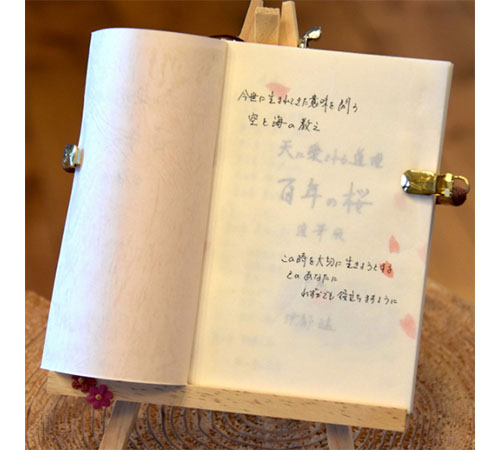 今世に生まれてきた意味を問う
空と海の教え
天に愛される道理
百年の桜
この時を大切に生きようとする
どのあなたに
わずかでも役立ちますように